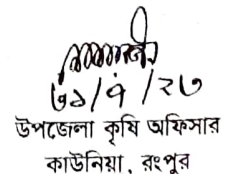 ৩১/৭/২৩
উপজেলা কৃষি অফিসার
কাউনিয়া, রংপুর